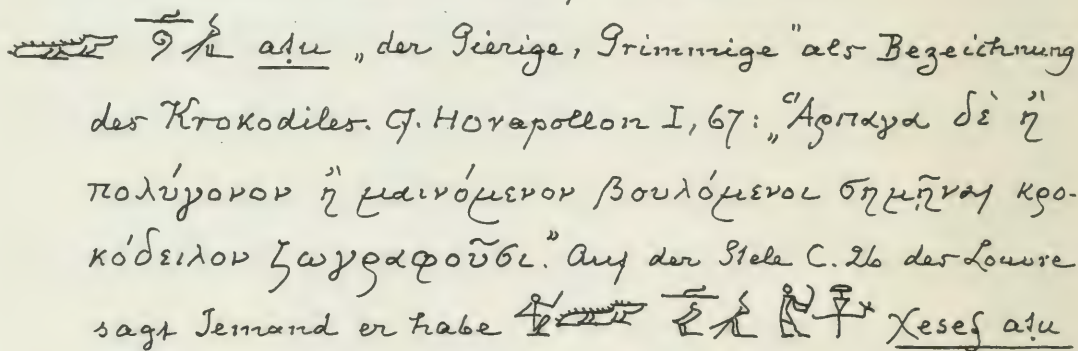 aꜣu „der Gierige, Grimmige" als Bezeichnung
des Krokodiles. Cf. Horapollon I, 67: „Ἅρπαγα δὲ ἢ
πολύγονον ἢ μαινόμενον βουλόμενοι σημῆναι κρο-
κόδειλον ζωγραφοῦσι." Auf der Stele C. 26 des Louvre
sagt Jemand er habe χesef aꜣu